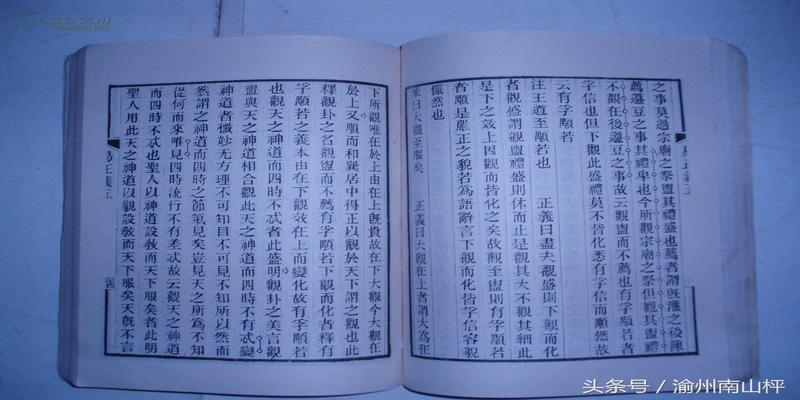 之事莫過宗廟之祭盥其禮盛也薦者謂旣灌之後陳
薦籩豆之事其禮卑也今所觀宗廟之祭但觀其盥禮
不觀在後籩豆之事故云觀盥而不薦也有孚顒若者
孚信也但下觀此盛禮莫不皆化悉有孚信而顒然故
云有孚顒若
注王道至顒若也 正義曰盡夫觀盛則下觀而化
者觀盛謂觀盥禮盛則休而止是觀其大不觀其細此
是下之效上因觀而皆化之矣故觀至盥則有孚顒若
者顒是嚴正之貌若爲語辭言下觀而化皆孚信容貌
儼然也
彖曰大觀至服矣 正義曰大觀在上者謂大爲在
下所觀唯在於上由在上旣貴故在下大觀今大觀在
於上又順而和巽居中得正以觀於天下謂之觀也此
釋觀卦之名觀盥而不薦有孚顒若下觀而化者釋有
孚顒若之義本由在下觀效在上而變化故有孚顒若
也觀天之神道而四時不忒者此盛明觀卦之美言觀
盥與天之神道相合觀此天之神道而四時不有忒變
神道者微妙无方理不可知目不可見不知所以然而
然謂之神道而四時之節氣見矣豈見天之所爲不知
從何而來唯見四時流行不有差忒故云觀天之神道
而四時不忒也聖人以神道設敎而天下服矣者此明
聖人用此天之神道以觀設敎而天下服矣天旣不言
易正義五
头条号／渝州南山枰